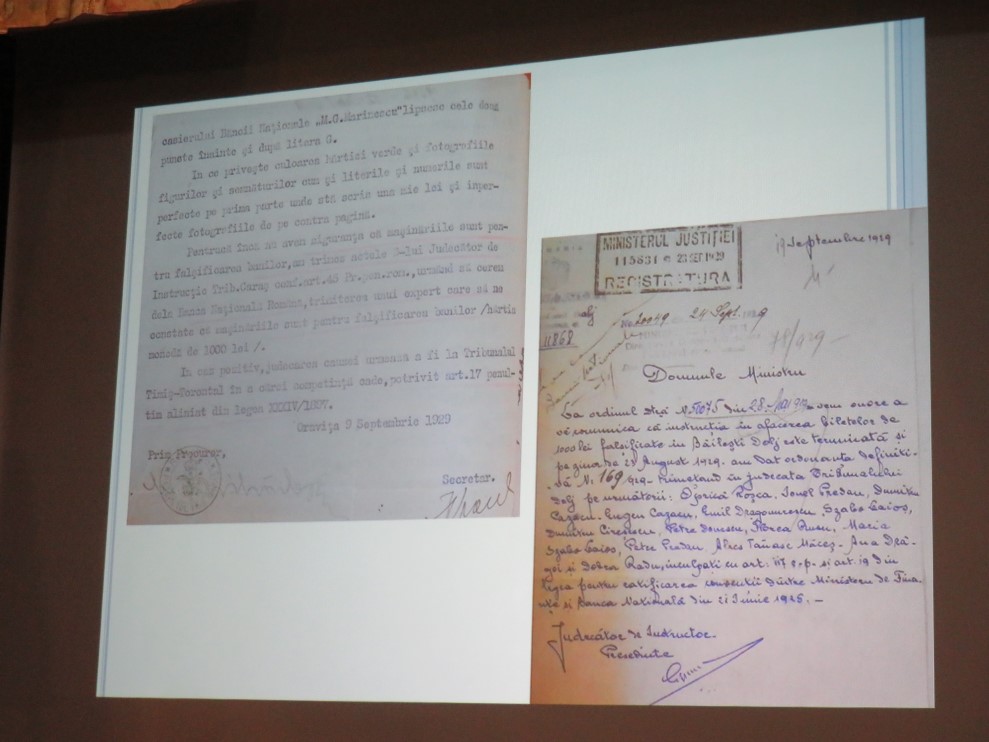 casierului Băncii Naționale „M.G.Marinescu" lipsesc cele două
puncte înainte și după litera G.
In ce privește culoarea hârtiei verde și fotografiile
figurilor și semnăturilor cum și literile și numerile sunt
perfecte pe prima parte unde stă scris una mie lei și imper-
fecte fotografiile de pe contra pagină.
Pentrucă încă nu avem siguranța că mașinăriile sunt pen-
tru falșificarea banilor, am trimes actele D-lui Judecător de
Instrucție Trib.Caraș conf.art.45 Pr.pen.rom., urmând să cerem
dela Banca Națională Română, trimiterea unui expert care să ne
constate că mașinăriile sunt pentru falșificarea banilor /hârtie
monedă de 1000 lei /.
In caz pozitiv, judecarea cauzei urmează a fi la Tribunalul
Timiș-Torontal în a cărei competință cade, potrivit art.17 penul-
tim aliniat din legea XXXIV/1897.
Oravița 9 Septembrie 1929
Prim Procuror,
Secretar.
MINISTERUL JUSTIȚIEI
115831 * 23 SEP.1929
REGISTRATURA
19 Septembrie 1929
11868
20049 24 Sept. 1929
78/929
Domnule Ministru
La ordinul Dvs. din 28 am onoare a
vă comunica că instrucția în afacerea biletelor de
1000 lei falsificate în Băilești Dolj este terminată și
pe ziua de 21 August 1929 am dat ordonanța definiti-
vă N. 169/929 trimetând în judecata Tribunalului
Dolj pe următorii: Oprica Roșca, Ionel Predan, Dumitru
Cazacu, Eugen Cazacu, Emil Dragomirescu, Szabo Laios,
Dumitru Petre Ionescu, Florea Rusu, Maria
Szabo Laios, Petre Predan, Tănase Ana Dră-
goi și Dobra Radu, inculpați cu art: 117 c.p. și art. 19 din
legea pentru ratificarea convenții dintre Ministeru de Fina
nțe și Banca Națională din 21 Iunie 1925. —
Judecător de Instrucție
Președinte